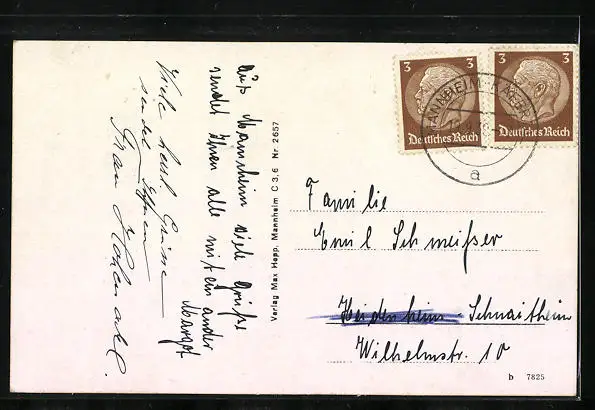 Aus Mannheim viele Grüße
sendet Ihnen alle miteinander
Margot
Viele herzl. Grüsse
sendet Ihnen
Frau
Verlag Max Hepp, Mannheim C 3,6 Nr. 2657
3 3
Deutsches Reich
3 3
Deutsches Reich
MANNHEIM-KÄFER
a
Familie
Emil Schmeißer
Heidenheim-Schnaitheim
Wilhelmstr. 10
b 7825